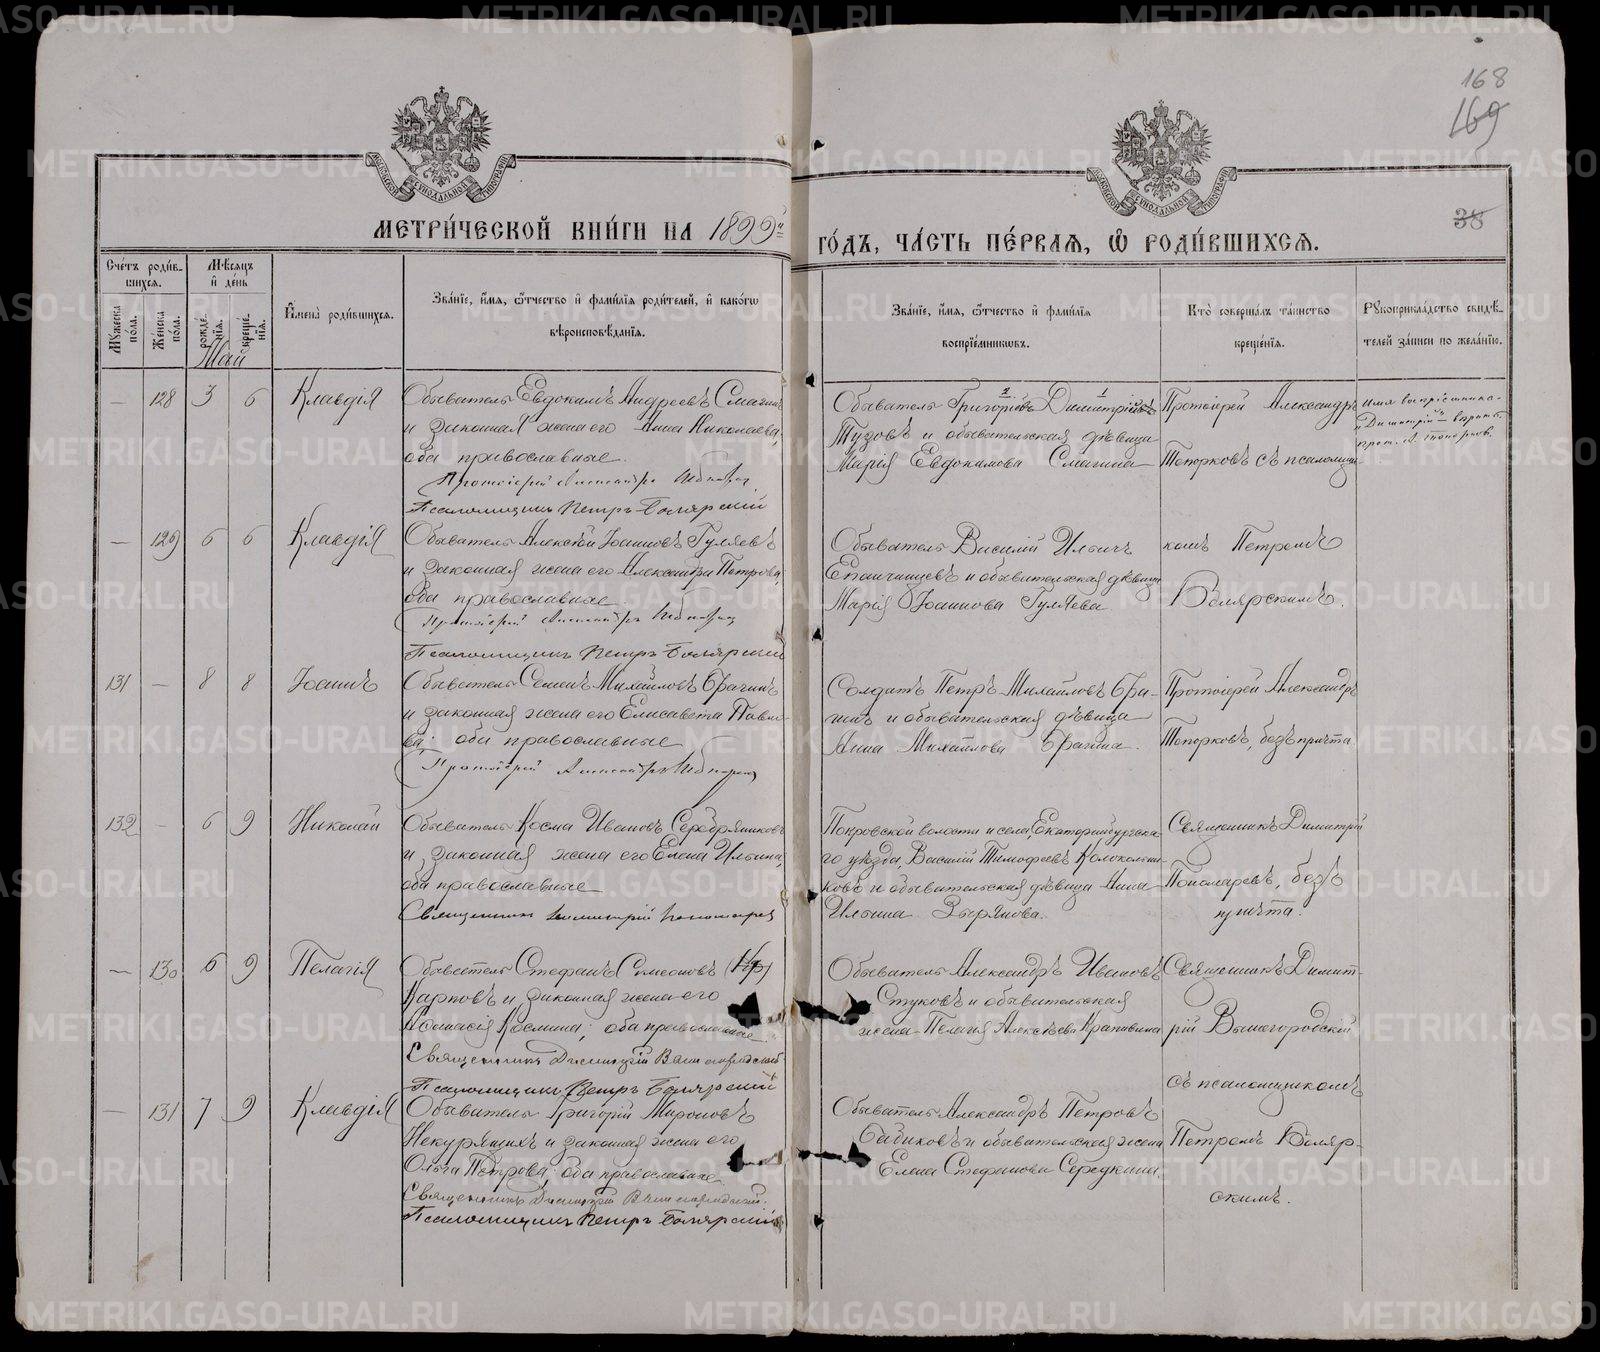 168
169
38
МЕТРИ́ЧЕСКОЙ КНИ́ГИ НА 1899й
ГО́ДЪ, ЧА́СТЬ ПЕ́РВАЯ, Ѡ РОДИ́ВШИХСЯ.
Сче́тъ роди́в-
шихся.
Мужеска
по́ла.
Же́нска
по́ла.
Мѣ́сяцъ
и де́нь
рожде́-
нія.
креще́-
нія.
Май
Имена̀ роди́вшихся.
Зва́ніе, и́мя, ѻ́тчество и фами́лія роди́телей, и како́гѡ
вѣроисповѣ́данія.
Зва́ніе, и́мя, ѻ́тчество и фами́лія
воспріе́мниковъ.
Кто̀ соверша́лъ та́инство
креще́нія.
Рукоприкла́дство свидѣ́-
телей за́писи по жела́нію.
— 128 3 6 Клавдія
Обыватель Евдокимъ Андреевъ Смагинъ
и законная жена его Анна Николаева,
оба православные.
Протоіерей Александръ Топорковъ
Псаломщикъ Петръ Болярский
Обыватель Григорій Димитріевъ
Тузовъ и обывательская дѣвица
Марія Евдокимова Смагина
Протоіерей Александръ
Топорковъ съ псаломщи-
имя воспріемника-
"Димитрій" вѣрно
прот. А. Топорковъ.
— 129 6 6 Клавдія
Обыватель Алексѣй Іоанновъ Гуляевъ
и законная жена его Александра Петрова;
оба православные
Протоіерей Александръ Топорковъ
Псаломщикъ Петръ Болярский
Обыватель Василій Ильичъ
Епанчинцевъ и обывательская дѣвица
Марія Іоаннова Гуляева
комъ Петромъ
Болярскимъ.
131 — 8 8 Іоаннъ
Обыватель Семенъ Михайловъ Брагинъ
и законная жена его Елисавета Павло-
ва; оба православные
Протоіерей Александръ Топорковъ
Солдатъ Петръ Михайловъ Бра-
гинъ и обывательская дѣвица
Анна Михайлова Брагина.
Протоіерей Александръ
Топорковъ, безъ причта
132 — 6 9 Николай
Обыватель Косма Ивановъ Серебрянниковъ
и законная жена его Елена Ильина,
оба православные
Священникъ Димитрій Пономаревъ
Покровской волости и села, Екатеринбургска-
го уѣзда, Василій Тимофеевъ Колокольни-
ковъ и обывательская дѣвица Анна
Ильина Зырянова.
Священникъ Димитрій
Пономаревъ, безъ
причта.
— 130 6 9 Пелагія
Обыватель Стефанъ Симеоновъ
Карповъ и законная жена его
Аѳанасія Космина; оба православные
Священникъ Димитрій Вышегородскій
Псаломщикъ Петръ Болярский
Обыватель Александръ Ивановъ
Стуковъ и обывательская
жена Пелагія Алексѣева Крапивина
Священникъ Димит-
рій Вышегородскій
съ псаломщикомъ
— 131 7 9 Клавдія
Обыватель Григорій Мироновъ
Некурящихъ и законная жена его
Ольга Петрова; оба православные
Священникъ Димитрій Вышегородскій.
Псаломщикъ Петръ Болярский
Обыватель Александръ Петровъ
Бабиковъ и обывательская жена
Елена Стефанова Середкина.
Петромъ Боляр-
скимъ.
METRIKI.GASO-URAL.RU